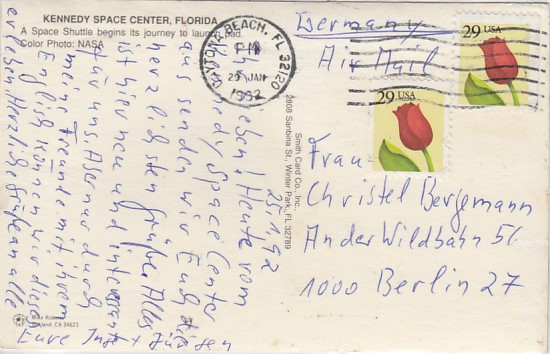 KENNEDY SPACE CENTER, FLORIDA
A Space Shuttle begins its journey to launch pad.
Color Photo: NASA
DAYTONA BEACH, FL 32120
PM
29 JAN
1992
29 USA
29 USA
Germany
Air Mail
Frau
Christel Bergemann
An der Wildbahn 5
1000 Berlin 27
Smith Card Co., Inc.
2808 Sanbina St., Winter Park, FL 32789
25.1.92
Ihr Lieben! Heute vom
Kennedy Space Center
aus senden wir Euch die
herzlichsten Grüße. Alles
ist hier neu und interessant
für uns. Aber nur durch
meine Freunde mit ihrem
Englisch können wir dieses
erleben. Herzliche Grüße an alle
Eure Inge + Jürgen
Mike Roberts
Oakland, CA 94623